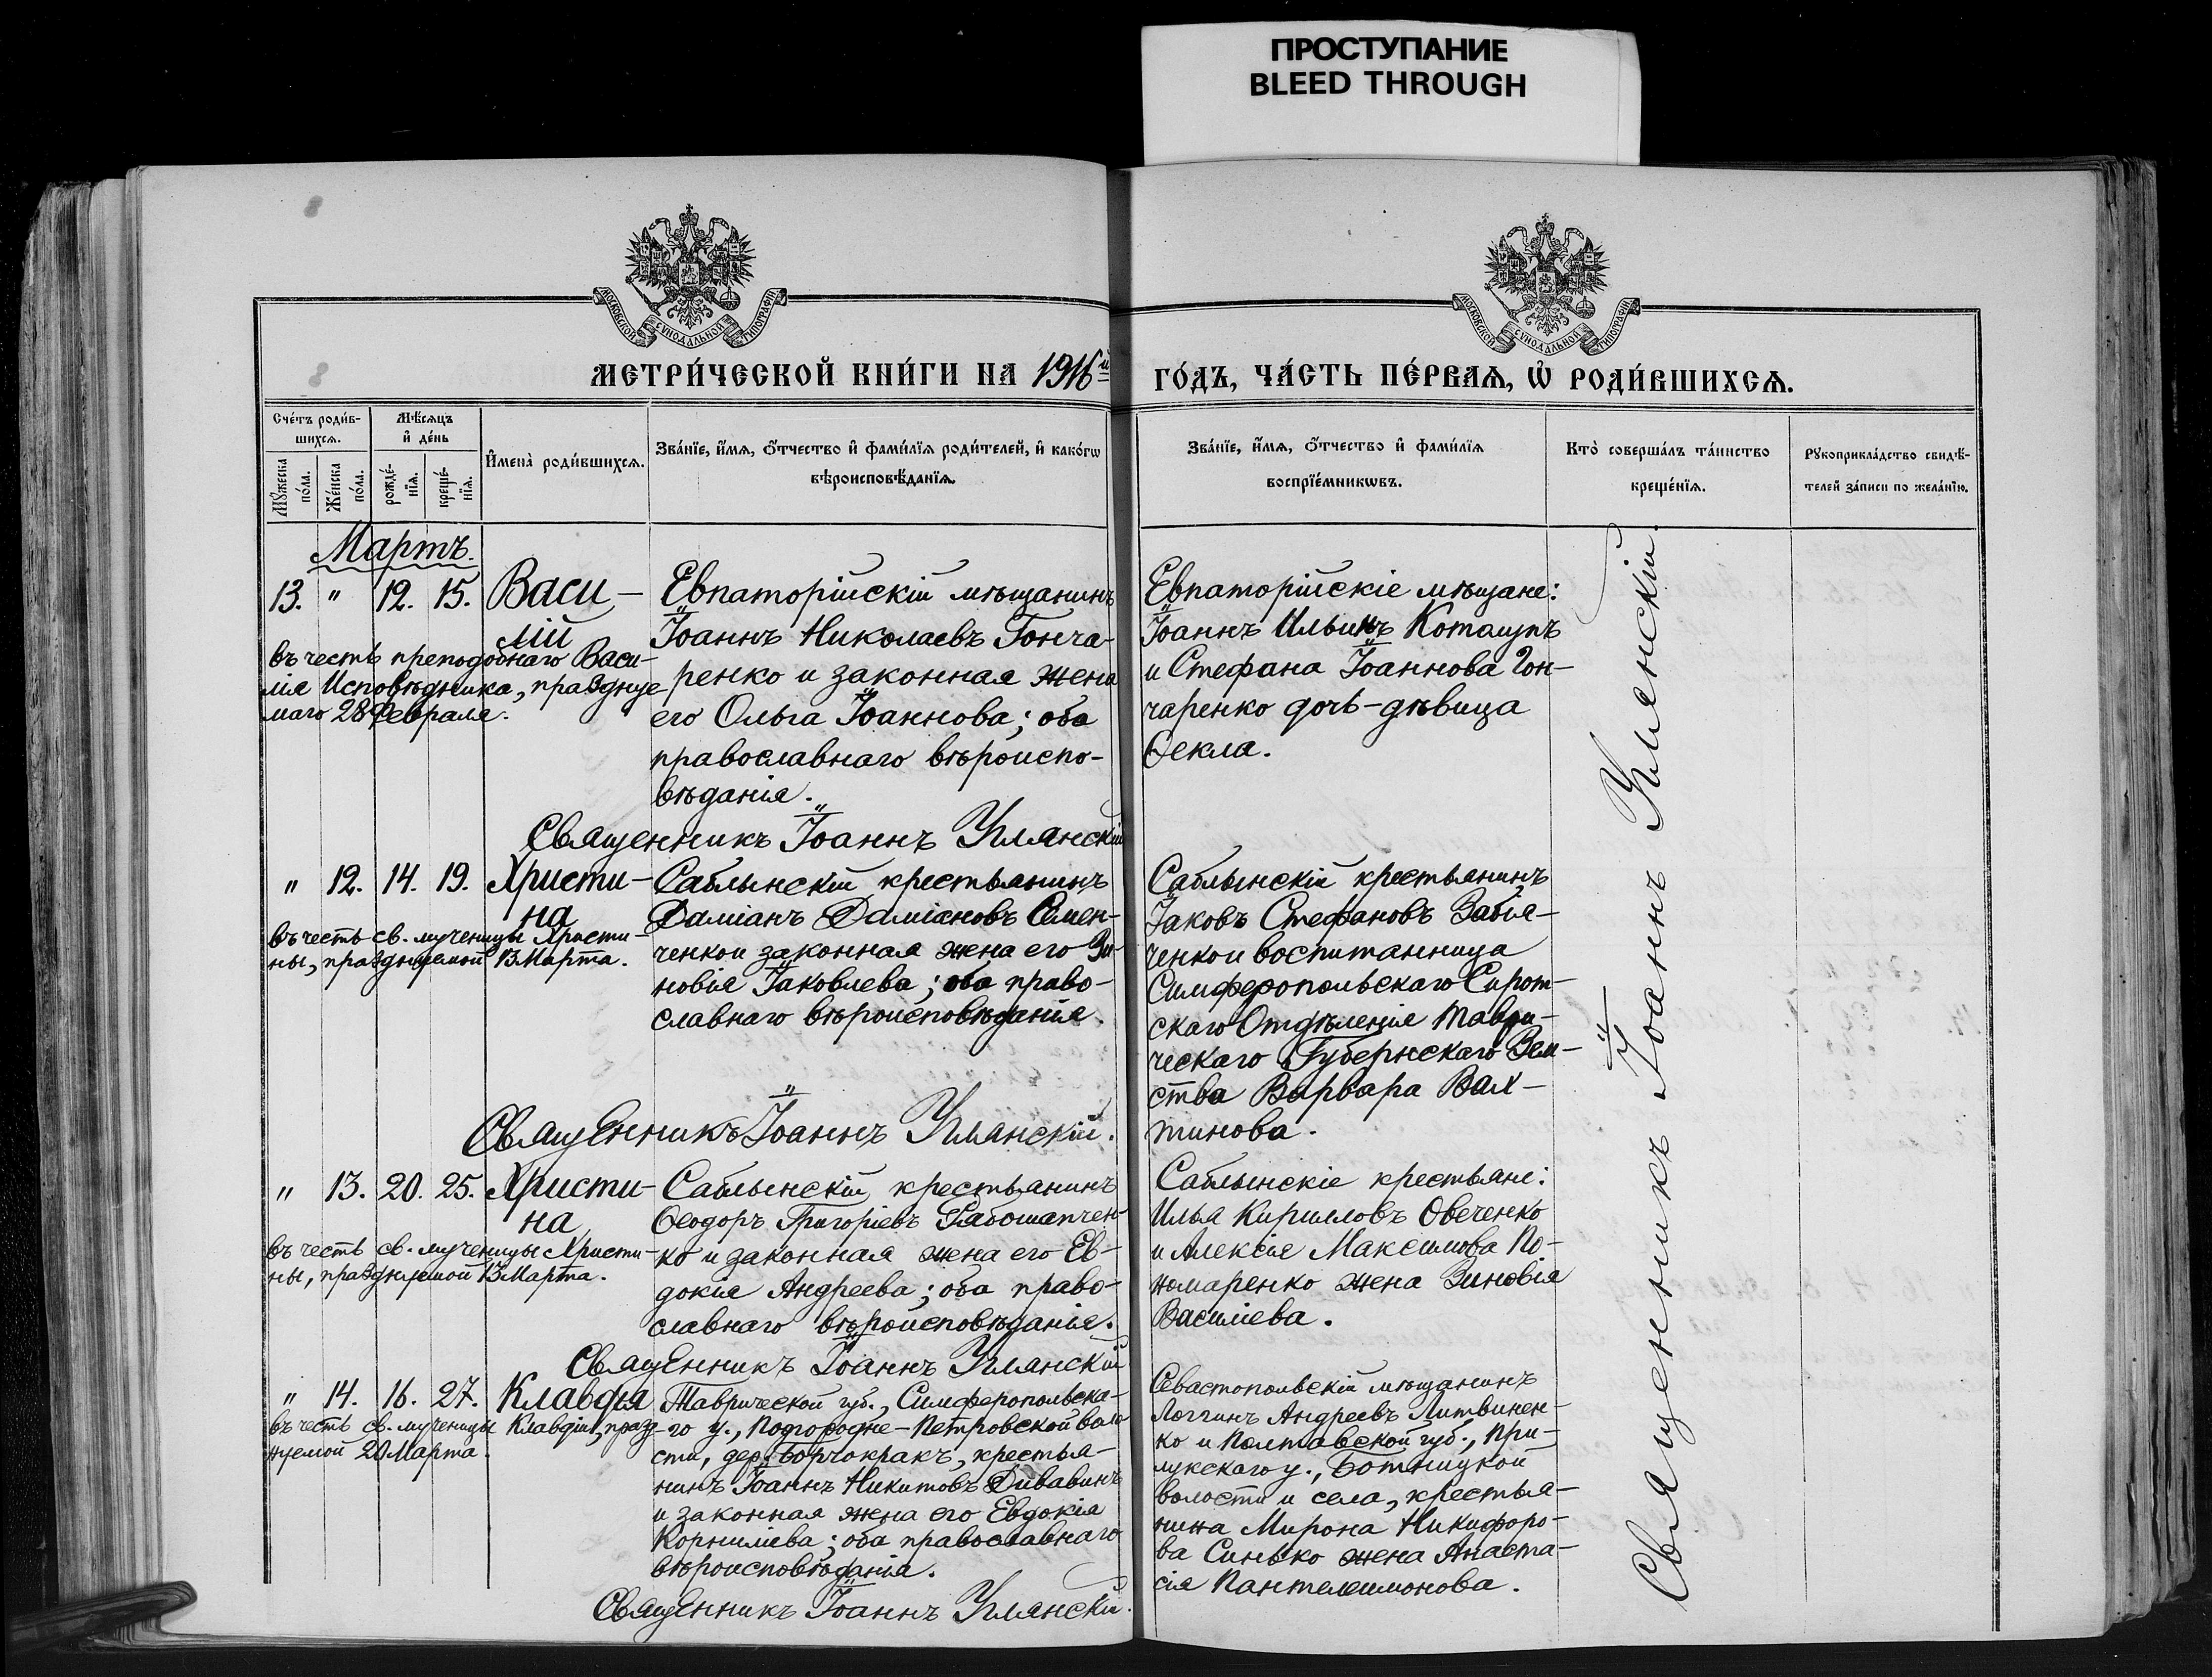 ПРОСТУПАНИЕ
BLEED THROUGH
МОСКОВСКОЙ СѴНОДАЛЬНОЙ ТИПОГРАФІИ
МОСКОВСКОЙ СѴНОДАЛЬНОЙ ТИПОГРАФІИ
МЕТРИ́ЧЕСКОЙ КНИ́ГИ НА 1916й ГО́ДЪ, ЧА́СТЬ ПЕ́РВАѦ, Ѡ҆ РОДИ́ВШИХСѦ.
Сче́тъ роди́в-
шихсѧ.
Мѣ́сѧцъ
и҆ де́нь
Мꙋ́жеска
по́ла.
Же́нска
по́ла.
рожде́-
нїѧ.
креще́-
нїѧ.
И҆мена̀ роди́вшихсѧ.
Зва́нїе, и҆́мѧ, ѻ҆́тчество и҆ фами́лїѧ роди́телей, и҆ како́гѡ
вѣроисповѣ́данїѧ.
Зва́нїе, и҆́мѧ, ѻ҆́тчество и҆ фами́лїѧ
воспрїе́мникѡвъ.
Кто̀ соверша́лъ та́инство
креще́нїѧ.
Рꙋкоприкла́дство свидѣ́-
телей за́писи по жела́нїю.
Мартъ.
13. " 12. 15. Васи-
лій
въ честь преподобнаго Васи-
лія Исповѣдника, празднуе
маго 28 Февраля.
Евпаторійскій мѣщанинъ
Іоаннъ Николаевъ Гонча-
ренко и законная жена
его Ольга Іоаннова; оба
православнаго вѣроиспо-
вѣданія.
Священникъ Іоаннъ Углянскій
Евпаторійскіе мѣщане:
Іоаннъ Ильинъ Котащукъ
и Стефана Іоаннова Гон-
чаренко дочь-дѣвица
Ѳекла.
" 12. 14. 19. Христи-
на
въ честь св. мученицы Христи-
ны, празднуемой 13 Марта.
Саблынскій крестьянинъ
Даміанъ Даміановъ Семен-
ченко и законная жена его Зи-
новія Іаковлева; оба право-
славнаго вѣроисповѣданія.
Священникъ Іоаннъ Углянскій.
Саблынскій крестьянинъ
Іаковъ Стефановъ Забія-
ченко и воспитанница
Симферопольскаго Сирот-
скаго Отдѣленія Таври-
ческаго Губернскаго Зем-
ства Варвара Вах-
тинова.
" 13. 20. 25. Христи-
на
въ честь св. мученицы Христи-
ны, празднуемой 13 Марта.
Саблынскій крестьянинъ
Ѳеодоръ Григоріевъ Рябошапчен-
ко и законная жена его Ев-
докія Андреева; оба право-
славнаго вѣроисповѣданія.
Священникъ Іоаннъ Углянскій
Саблынскіе крестьяне:
Илья Кирилловъ Овеченко
и Алексія Максимова По-
номаренко жена Зиновія
Василіева.
" 14. 16. 27. Клавдія
въ честь св. мученицы Клавдіи, празд
нуемой 20 Марта.
Таврической губ., Симферопольска-
го у., Подгородне-Петровской воло
сти, дер. Борчокракъ, крестья-
нинъ Іоаннъ Никитовъ Дивавинъ
и законная жена его Евдокія
Корниліева; оба православнаго
вѣроисповѣданія.
Священникъ Іоаннъ Углянскій.
Севастопольскій мѣщанинъ
Логгинъ Андреевъ Литвинен-
ко и Полтавской губ., При-
лукскаго у.,
волости и села, крестья-
нина Мирона Никифоро-
ва Синько жена Анаста-
сія Пантелеимонова.
Священникъ Іоаннъ Углянскій.